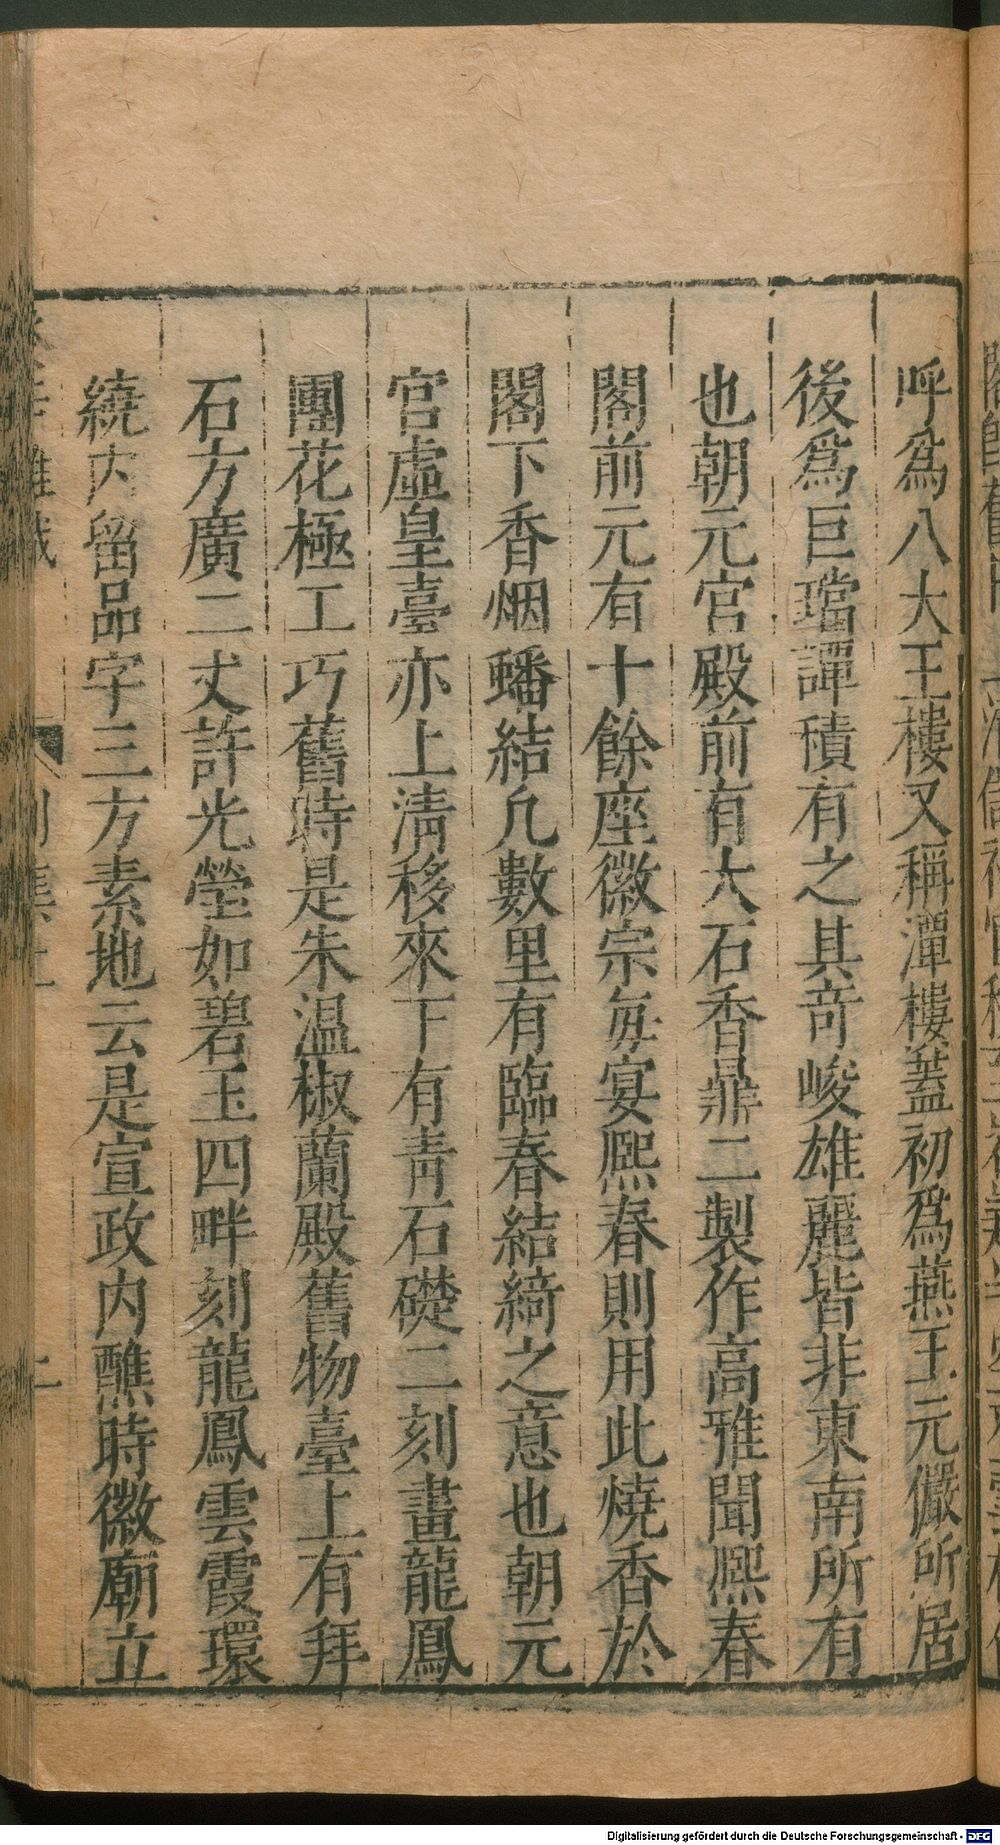 呼爲八大王樓又稱潭樓蓋初爲燕王元儼所居
後爲巨璫譚積有之其竒峻雄麗皆非東南所有
也朝元宮殿前有大石香鼎二製作高雅聞熈春
閣前元有十餘座徽宗每宴熈春則用此燒香於
閣下香烟蟠結凡數里有臨春結綺之意也朝元
宮虛皇臺亦上清移來下有青石礎二刻畫龍鳳
團花極工巧舊時是朱温椒蘭殿舊物臺上有拜
石方廣二丈許光瑩如碧玉四畔刻龍鳳雲霞環
繞内留品字三方素地云是宣政内醮時徽廟立
Digitalisierung gefördert durch die Deutsche Forschungsgemeinschaft - DFG